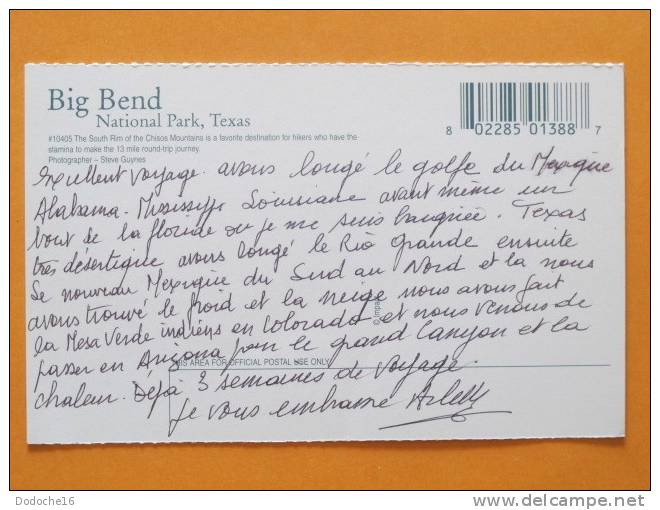 Big Bend
National Park, Texas
#10405 The South Rim of the Chisos Mountains is a favorite destination for hikers who have the
stamina to make the 13 mile round-trip journey.
Photographer – Steve Guynes
8 02285 01388 7
excellent voyage. avons longé le golfe du Mexique
Alabama - Mississippi Louisiane avant même un
bout de la floride ou je me suis baignée. Texas
très désertique avons longé le Rio Grande ensuite
Le nouveau Mexique du Sud au Nord et la nous
avons trouvé le froid et la neige nous avons fait
la Mesa Verde indiens en Colorado et nous venons de
passer en Arizona pour le grand Canyon et la
chaleur. Déjà 3 semaines de voyage.
Je vous embrasse
THIS AREA FOR OFFICIAL POSTAL USE ONLY
© Impact
Dodoche16
www.delcampe.net